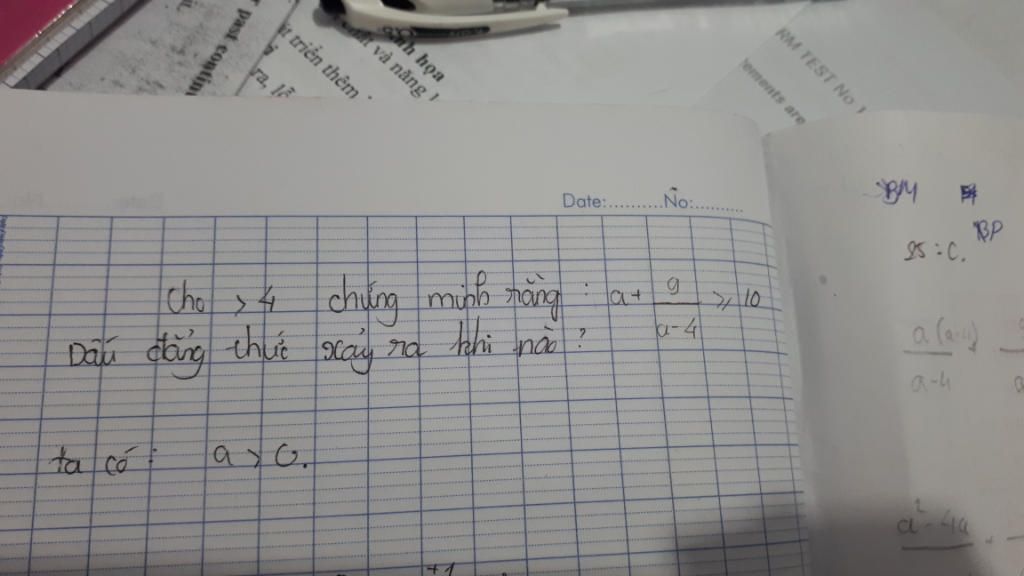 past contin
h họa
t và năng l
t triển thêm
ra, lỗ
RM TEST No 1
ements are
Date:..........No:.........
BM
BP
25 = C.
Cho > 4 chứng minh rằng : a + 9/(a-4) ⩾ 10
Dấu đẳng thức xảy ra khi nào ?
a-4
ta có : a > 0.
a² - 4a
+1